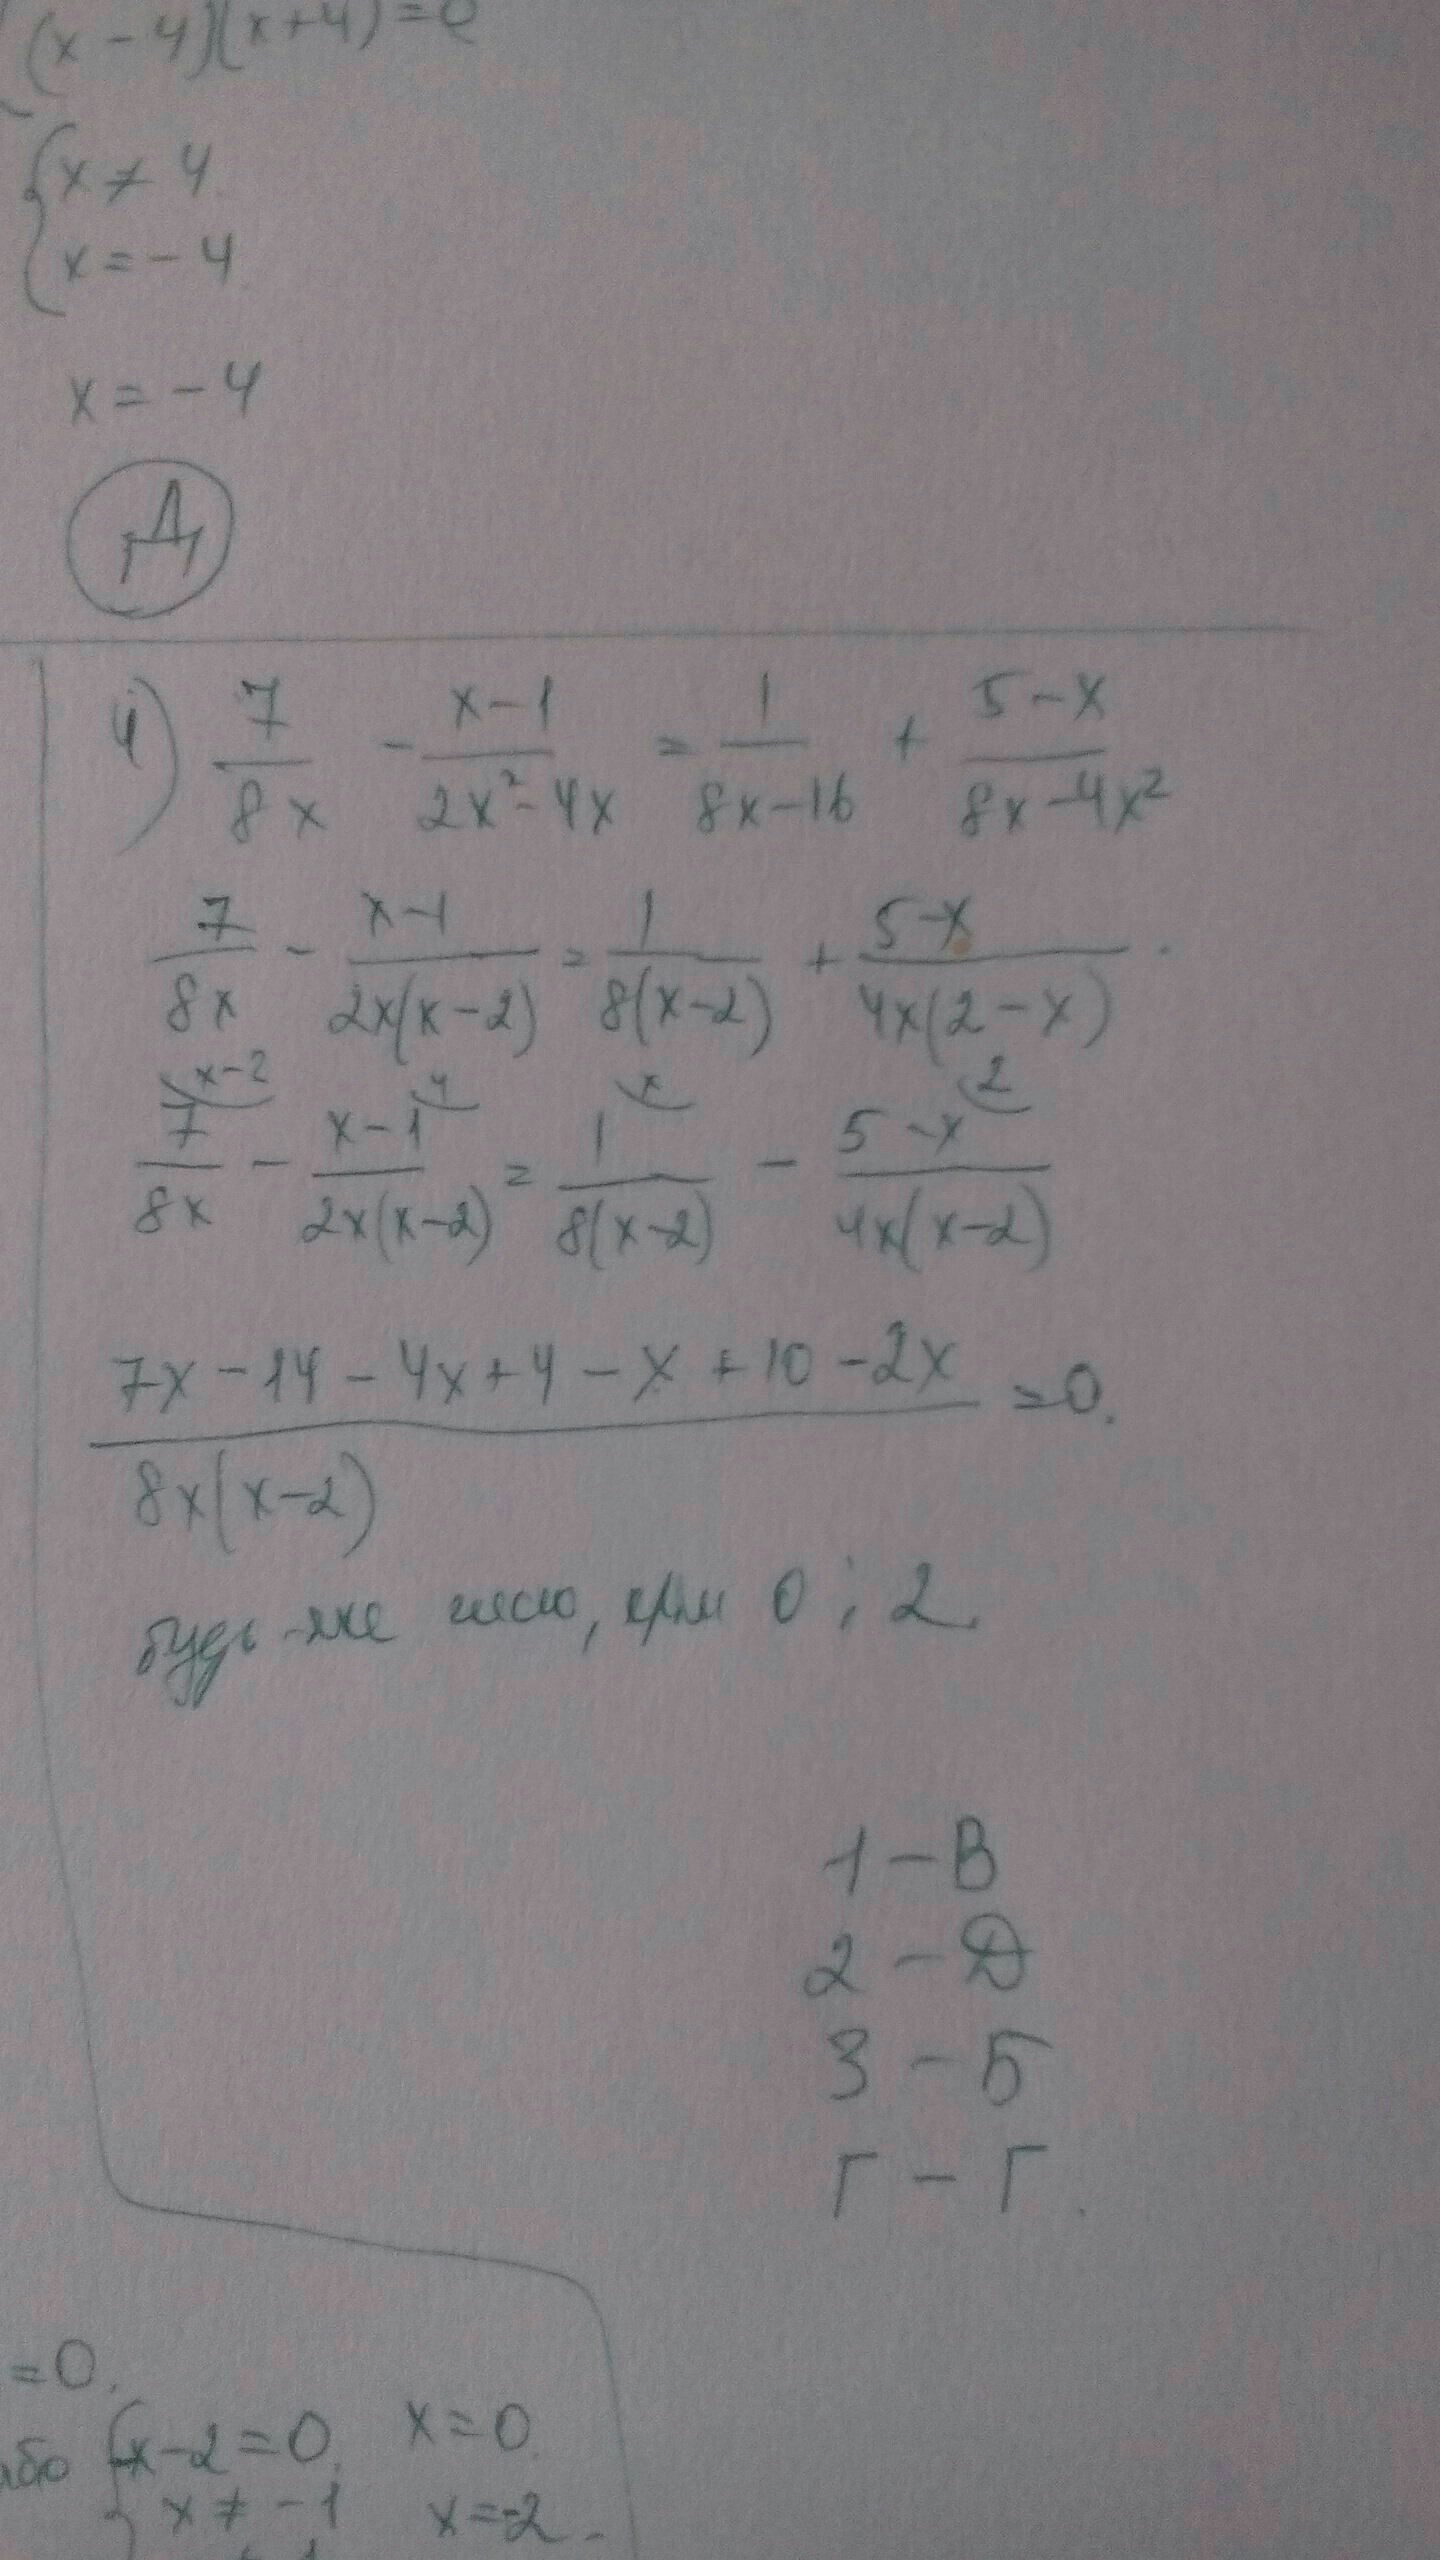 (x-4)(x+4)=0
{x≠4.
x=-4.
x=-4
Д
4) 7/8x - (x-1)/(2x²-4x) = 1/(8x-16) + (5-x)/(8x-4x²)
7/8x - (x-1)/(2x(x-2)) = 1/(8(x-2)) + (5-x)/(4x(2-x)) .
x-2 4 x 2
7/8x - (x-1)/(2x(x-2)) = 1/(8(x-2)) - (5-x)/(4x(x-2))
(7x-14-4x+4-x+10-2x)/(8x(x-2)) =0.
будь-яке число, крім 0 і 2.
1-В
2-Д
3-Б
Г-Г.
=0.
або {x-2=0. x=0.
x≠-1 x=-2.